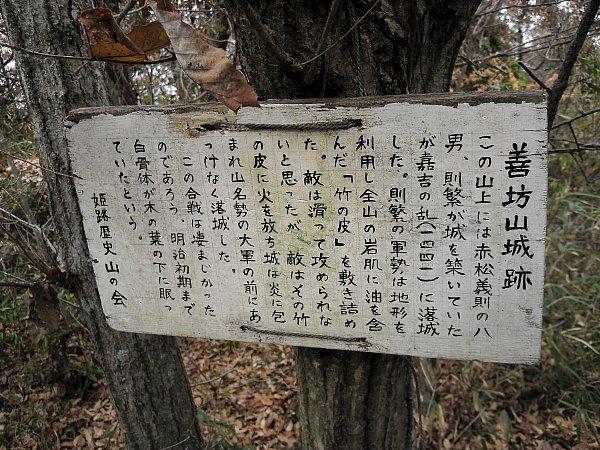 善坊山城跡
この山上には赤松義則の八
男、則繁が城を築いていた
が嘉吉の乱(一四四一)に落城
した。則繁の軍勢は地形を
利用し全山の岩肌に油を含
んだ「竹の皮」を敷き詰め
た。敵は滑って攻められな
いと思ったが、敵はその竹
の皮に火を放ち城は炎に包
まれ山名勢の大軍の前にあ
っけなく落城した。
この合戦は凄まじかった
のであろう、明治初期まで
白骨体が木の葉の下に眠っ
ていたという。
姫路歴史山の会